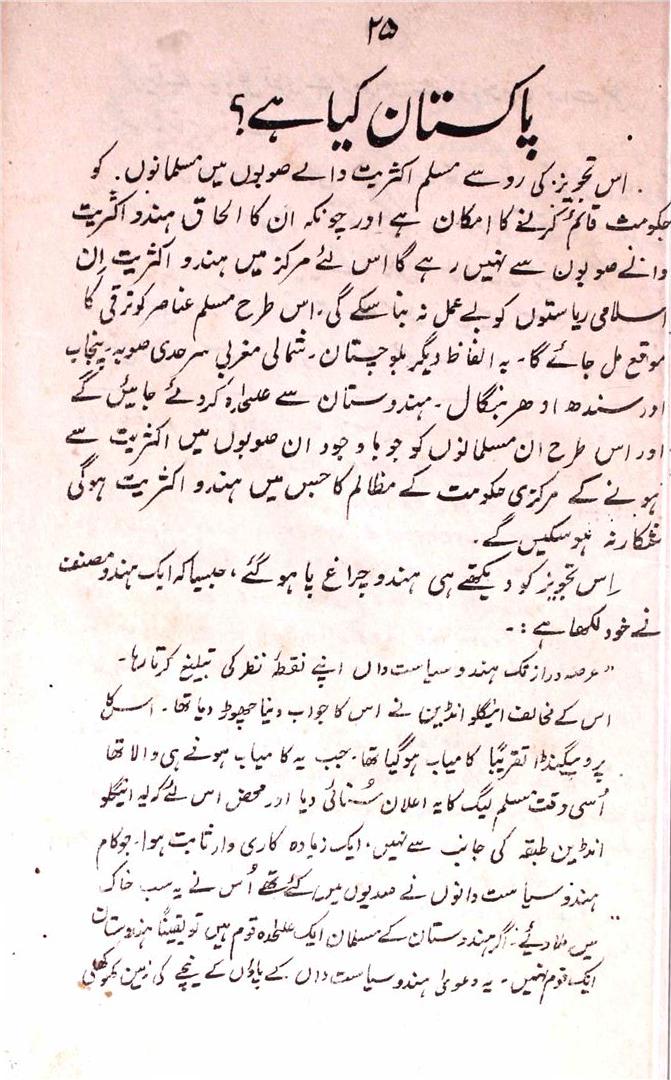 ۲۵
پاکستان کیا ہے؟
اس تجویز کی رو سے مسلم اکثریت والے صوبوں میں مسلمانوں کو
حکومت قائم کرنے کا امکان ہے اور چونکہ ان کا الحاق ہندو اکثریت
والے صوبوں سے نہیں رہے گا اس لئے مرکز میں ہندو اکثریت اِن
اسلامی ریاستوں کو بے عمل نہ بنا سکے گی۔ اس طرح مسلم عناصر کو ترقی کا
موقع مل جائے گا۔ بہ الفاظ دیگر بلوچستان۔ شمالی مغربی سرحدی صوبہ۔ پنجاب
اور سندھ ادھر بنگال۔ ہندوستان سے علٰحدہ کر دئے جائیں گے
اور اس طرح ان مسلمانوں کو جو باوجود ان صوبوں میں اکثریت سے
ہونے کے مرکزی حکومت کے مظالم کا جس میں ہندو اکثریت ہوگی
شکار نہ ہو سکیں گے۔
اِس تجویز کو دیکھتے ہی ہندو چراغ پا ہو گئے، جیسا کہ ایک ہندو مصنف
نے خود لکھا ہے :۔
"عرصہ دراز تک ہندو سیاست داں اپنے نقطۂ نظر کی تبلیغ کرتا رہا۔
اس کے مخالف اینگلو انڈین نے اس کا جواب دینا چھوڑ دیا تھا۔ اس کا
پروپیگنڈا تقریباً کامیاب ہوگیا تھا۔ جب یہ کامیاب ہونے ہی والا تھا
اُسی وقت مسلم لیگ کا یہ اعلان سُنائی دیا اور محض اس لئے کہ یہ اینگلو
انڈین طبقہ کی جانب سے نہیں، ایک زیادہ کاری وار ثابت ہوا۔ جو کام
ہندو سیاست دانوں نے صدیوں میں کئے تھے اُس نے یہ سب خاک
میں ملا دئیے۔ اگر ہندوستان کے مسلمان ایک علٰحدہ قوم ہیں تو یقیناً ہندوستان
ایک قوم نہیں۔ یہ دعویٰ ہندو سیاست داں کے پاؤں کے نیچے کی زمین